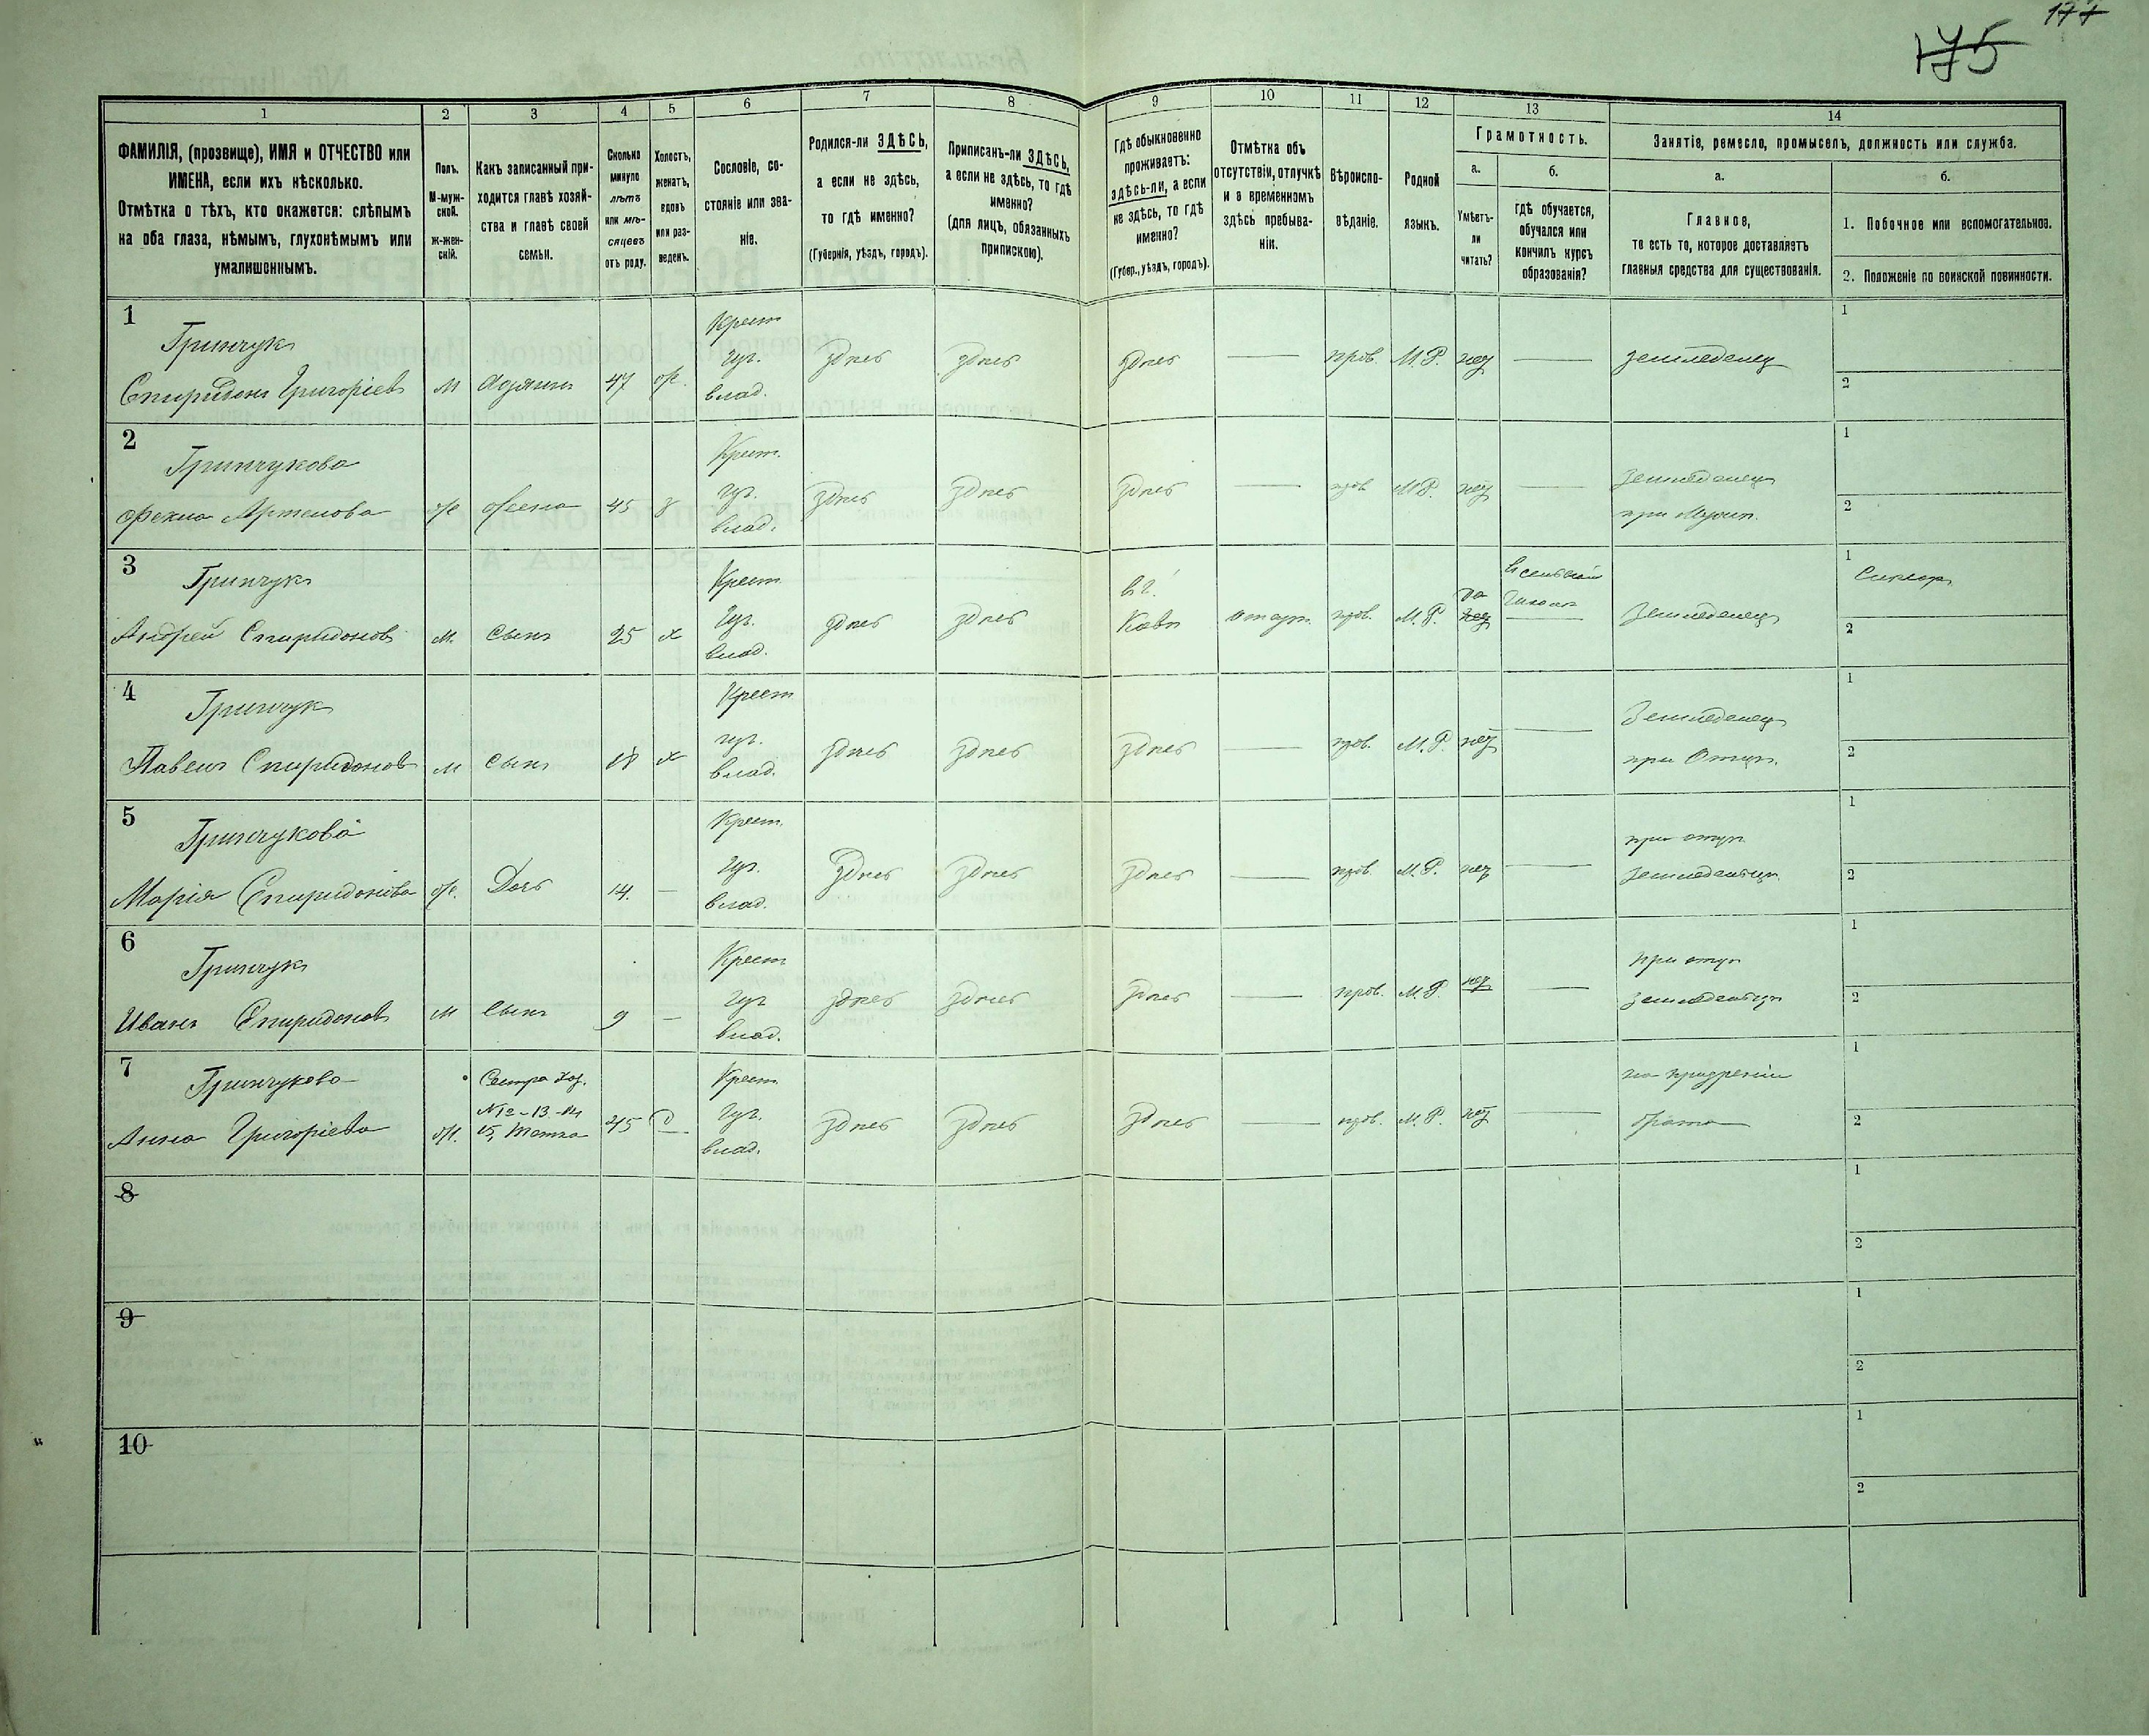 177
175
1
2
3
4
5
6
7
8
9
10
11
12
13
14
ФАМИЛІЯ, (прозвище), ИМЯ и ОТЧЕСТВО или
ИМЕНА, если ихъ нѣсколько.
Отмѣтка о тѣхъ, кто окажется: слѣпымъ
на оба глаза, нѣмымъ, глухонѣмымъ или
умалишеннымъ.
Полъ.
М-муж-
ской.
ж-жен-
скій.
Какъ записанный при-
ходится главѣ хозяй-
ства и главѣ своей
семьи.
Сколько
минуло
лѣтъ
или мѣ-
сяцевъ
отъ роду.
Холостъ,
женатъ,
вдовъ
или раз-
веденъ.
Сословіе, со-
стояніе или зва-
ніе.
Родился-ли ЗДѢСЬ,
а если не здѣсь,
то гдѣ именно?
(Губернія, уѣздъ, городъ).
Приписанъ-ли ЗДѢСЬ,
а если не здѣсь, то гдѣ
именно?
(для лицъ, обязанныхъ
припискою).
Гдѣ обыкновенно
проживаетъ:
здѣсь-ли, а если
не здѣсь, то гдѣ
именно?
(Губер., уѣздъ, городъ).
Отмѣтка объ
отсутствіи, отлучкѣ
и о временномъ
здѣсь пребыва-
ніи.
Вѣроиспо-
вѣданіе.
Родной
языкъ.
Грамотность.
а.
Умѣетъ-
ли
читать?
б.
гдѣ обучается,
обучался или
кончилъ курсъ
образованія?
Занятіе, ремесло, промыселъ, должность или служба.
а.
Главное,
то есть то, которое доставляетъ
главныя средства для существованія.
б.
1. Побочное или вспомогательное.
2. Положеніе по воинской повинности.
1
Гринчук
Спиридонъ Григоріев
М
47
Крест
влад.
здѣсь
здѣсь
здѣсь
прав.
М.Р.
нѣт
земледѣлец
1
2
2
Гринчукова
Фекла Артемова
жена
45
Крест.
влад.
здѣсь
здѣсь
здѣсь
прав
М.Р.
нѣт
Земледѣлец
1
2
3
Гринчук
Андрей Спиридонов
М.
Сынъ
25
х
Крест
влад.
здѣсь
здѣсь
прав.
М.Р.
да
нѣт
Земледѣлец
1
2
4
Гринчук
Павелъ Спиридонов
М
Сынъ
18
х
Крест
влад.
здѣсь
здѣсь
здѣсь
прав.
М.Р.
нѣт
Земледѣлец
при Отцѣ.
1
2
5
Гринчукова
Марія Спиридонова
ж.
Дочь
14.
Крест.
влад.
здѣсь
здѣсь
здѣсь
прав.
М.Р.
нѣт
при отцѣ
1
2
6
Гринчук
Иванъ Спиридонов
М
Сынъ
9
Крест
влад.
здѣсь
здѣсь
здѣсь
прав.
М.Р.
нѣт
при отцѣ
1
2
7
Гринчукова
Анна Григоріева
ж.
Сестра хоз.
№ 2-13-14
15, Тетка
45
Д
Крест
влад.
здѣсь
здѣсь
здѣсь
прав.
М.Р.
нѣт
на призрѣніи
брата
1
2
8
1
2
9
1
2
10
1
2